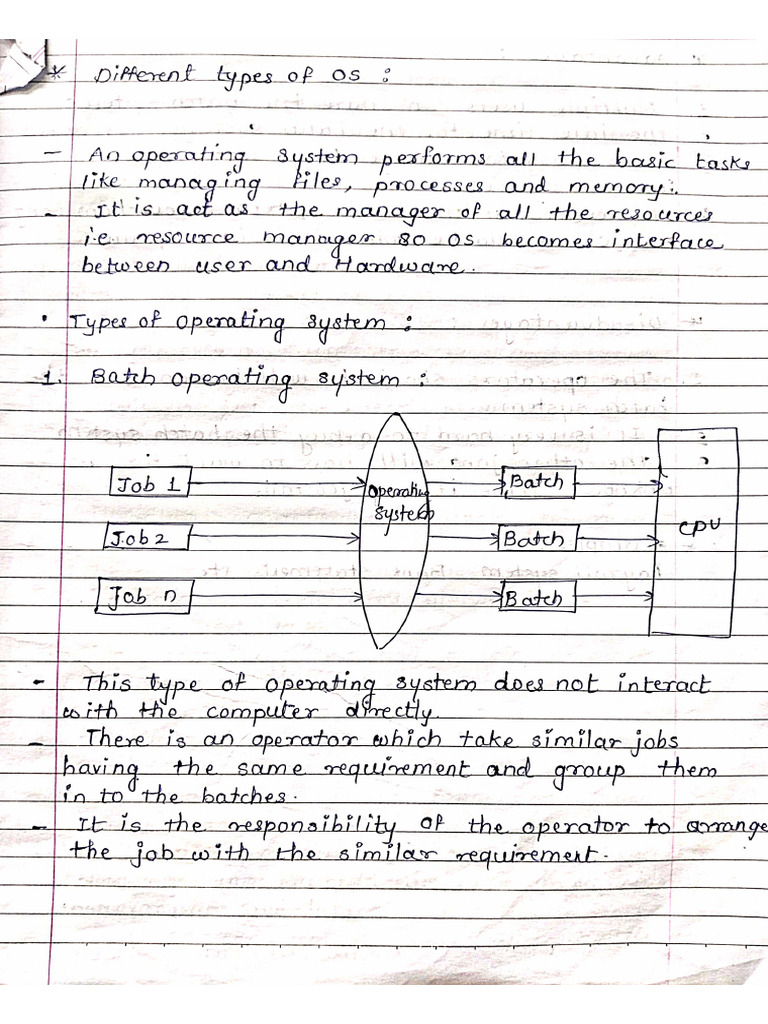 * Different types of OS :
- An operating system performs all the basic tasks
like managing files, processes and memory.
- It is act as the manager of all the resources
i.e resource manager so OS becomes interface
between user and Hardware.
• Types of operating system :
1. Batch operating system :
Job 1
Operating
system
Batch
CPU
Job 2
Batch
Job n
Batch
- This type of operating system does not interact
with the computer directly.
- There is an operator which take similar jobs
having the same requirement and group them
in to the batches.
- It is the responsibility of the operator to arrange
the job with the similar requirement.